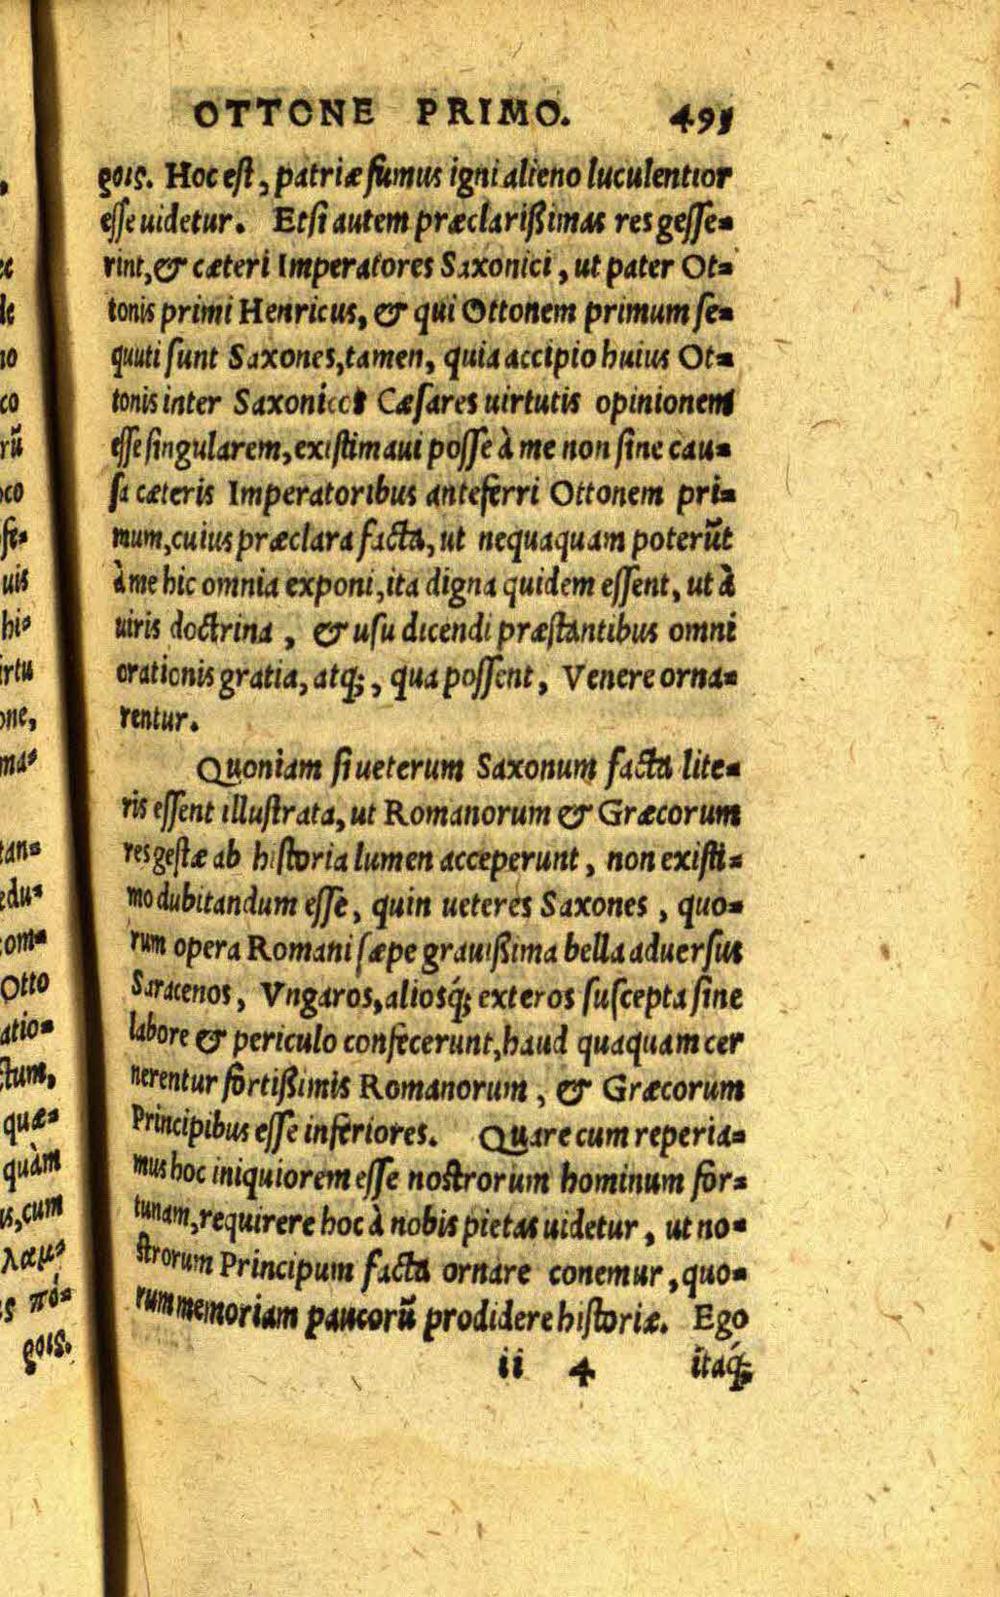 OTTONE PRIMO.
ροις. Hoc est, patriæ fumus igni alieno luculentior
esse uidetur. Etsi autem præclarißimas res gesse-
rint, & cæteri Imperatores Saxonici, ut pater Ot-
tonis primi Henricus, & qui Ottonem primum se-
quuti sunt Saxones, tamen, quia accipio huius Ot-
tonis inter Saxonicos Cæsares uirtutis opinionem
esse singularem, existimaui posse à me non sine cau-
sa cæteris Imperatoribus anteferri Ottonem pri-
mum, cuius præclara facta, ut nequaquam poterūt
à me hic omnia exponi, ita digna quidem essent, ut à
uiris doctrina, & usu dicendi præstantibus omni
orationis gratia, atq;, qua possent, Venere orna-
rentur.
Quoniam si ueterum Saxonum facta lite-
ris essent illustrata, ut Romanorum & Græcorum
res gestæ ab historia lumen acceperunt, non existi-
mo dubitandum esse, quin ueteres Saxones, quo-
rum opera Romani sæpe grauißima bella aduersus
Saracenos, Vngaros, aliosq́; exteros suscepta sine
labore & periculo confecerunt, haud quaquam cer
nerentur fortißimis Romanorum, & Græcorum
Principibus esse inferiores. Quare cum reperia-
mus hoc iniquiorem esse nostrorum hominum for-
tunam, requirere hoc à nobis pietas uidetur, ut no-
strorum Principum facta ornare conemur, quo-
rum memoriam paucorū prodidere historiæ. Ego
ii 4 itaq́;